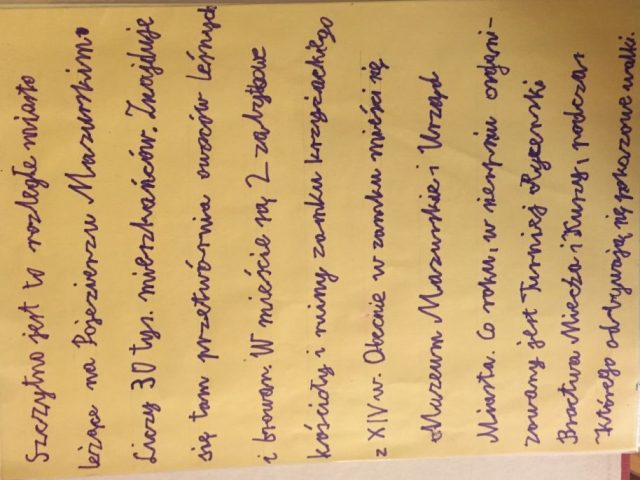 Szczytno jest to rozległe miasto
leżące na Pojezierzu Mazurskim.
Liczy 30 tyś. mieszkańców. Znajduje
się tam przetwórnia owoców leśnych
i browar. W mieście są 2 zabytkowe
kościoły i ruiny zamku krzyżackiego
z XIV w. Obecnie w zamku mieści się
Muzeum Mazurskie i Urząd
Miasta. Co roku, w sierpniu organi-
zowany jest Turniej Rycerski
Bractwa Miecza i Kuszy, podczas
którego odbywają się pokazowe walki.